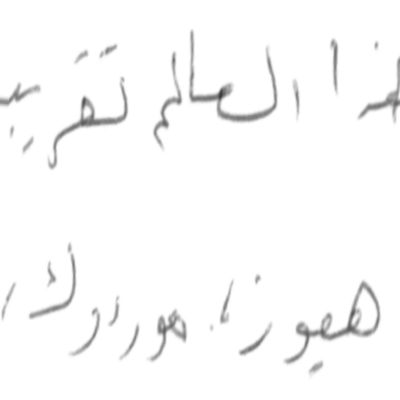 هذا العالم تقريبـ
هيوز، هوراوك،